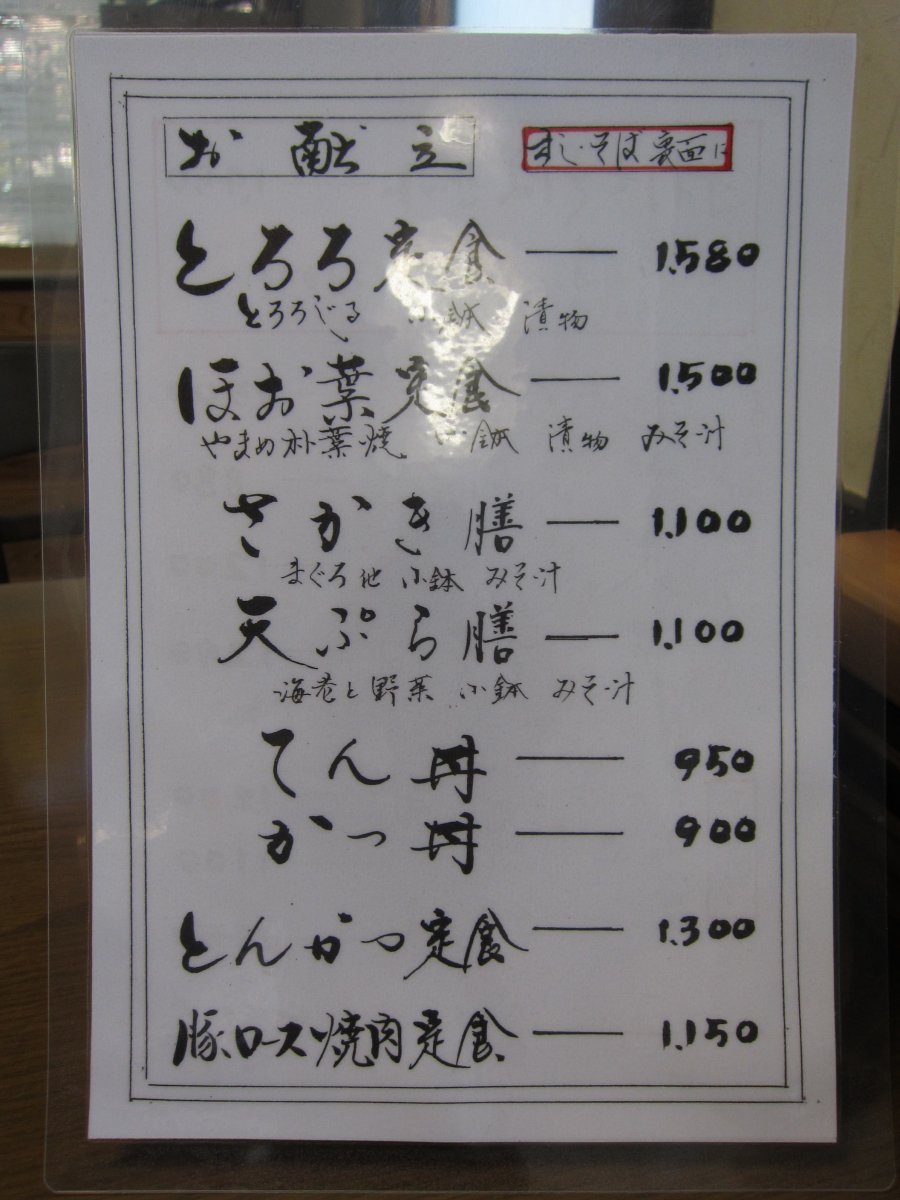 お献立
すし・そば裏面に
とろろ定食 1,580
とろろじる 小鉢 漬物
ほお葉定食 1,500
やまめ朴葉焼 小鉢 漬物 みそ汁
さかき膳 1,100
まぐろ他 小鉢 みそ汁
天ぷら膳 1,100
海老と野菜 小鉢 みそ汁
てん丼 950
かつ丼 900
とんかつ定食 1,300
豚ロース焼肉定食 1,150